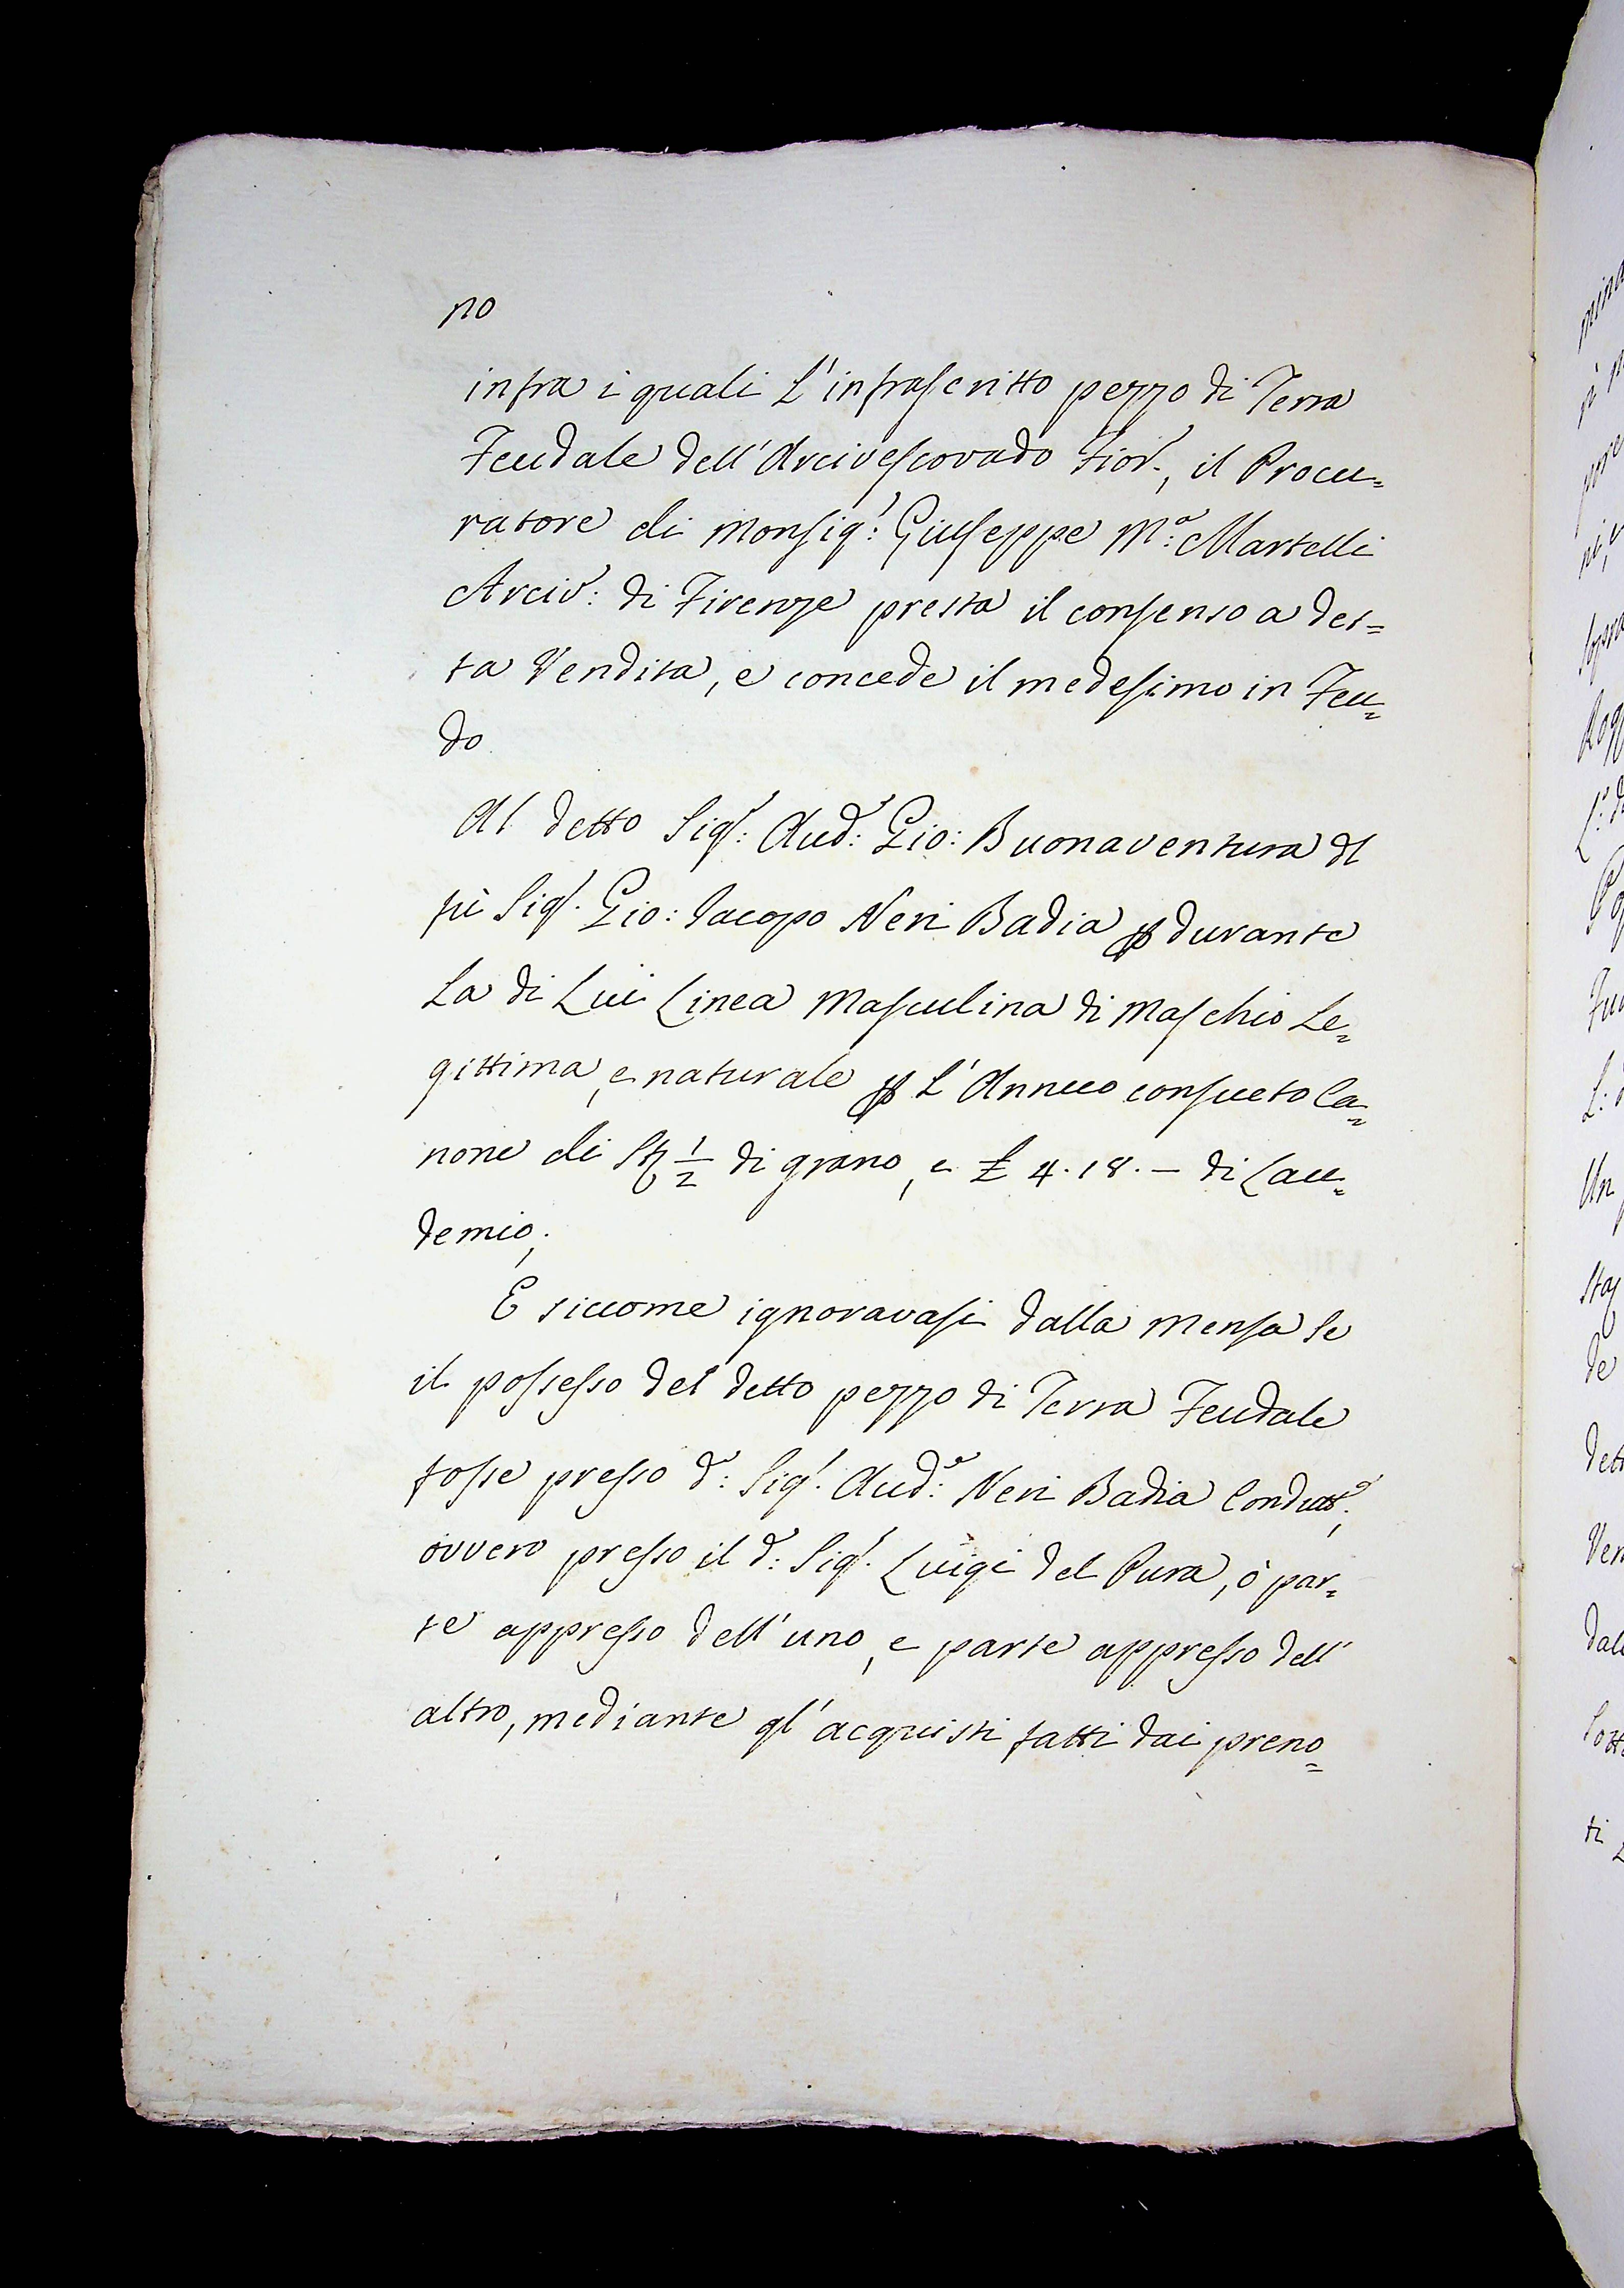 no
infra i quali L'infrascritto pezzo di Terra
Feudale dell'Arcivescovado Fior:, il Procu=
ratore di Monsig:r Giuseppe M:a Martelli
Arciv:o di Firenze presta il consenso a det=
ta Vendita, e concede il medesimo in Feu=
do
Al detto Sig:r Aud:e Gio: Buonaventura dl
fù Sig:r Gio: Jacopo Neri Badia ꝑ durante
La di Lui Linea Masculina di Maschio Le=
gittima, e naturale ꝑ L'Annuo consueto Ca=
none di St: 1/2 di grano, e £ 4.18.– di Lau=
demio;
E siccome ignoravasi dalla Mensa Se
il possesso del detto pezzo di Terra Feudale
fosse presso d:o Sig:r Aud:e Neri Badia Condutt:e,
ovvero presso il d:o Sig:r Luigi del Pura, ò par=
te appresso dell'uno, e parte appresso dell'
altro, mediante gl'acquisti fatti dai preno=